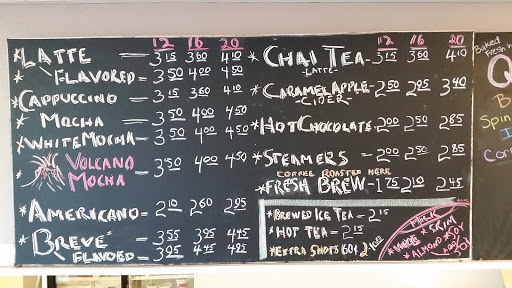 12 16 20
*LATTE = 3 15 3 60 4 10
* FLAVORED = 3 50 4 00 4 50
*CAPPUCCINO = 3 15 3 60 4 10
* MOCHA = 3 50 4 00 4 50
*WHITE MOCHA = 3 50 4 00 4 50
* VOLCANO MOCHA = 3 50 4 00 4 50
*AMERICANO = 2 10 2 60 2 95
*BREVÉ = 3 55 3 95 4 45
FLAVORED = 3 95 4 45 4 95
12 16 20
*CHAI TEA - 3 15 3 60 4 10
-LATTE-
*CARAMEL APPLE - 2 50 2 95 3 40
-CIDER-
*HOT CHOCOLATE - 2 00 2 50 2 85
*STEAMERS - 2 00 2 50 2 85
COFFEE ROASTED HERE
*FRESH BREW - 1 75 2 10 2 45
*BREWED ICE TEA - 2 15
*HOT TEA = 2 15
*EXTRA SHOTS 60¢
MILK
*WHOLE *SKIM
*ALMOND *SOY
Baked
Fresh